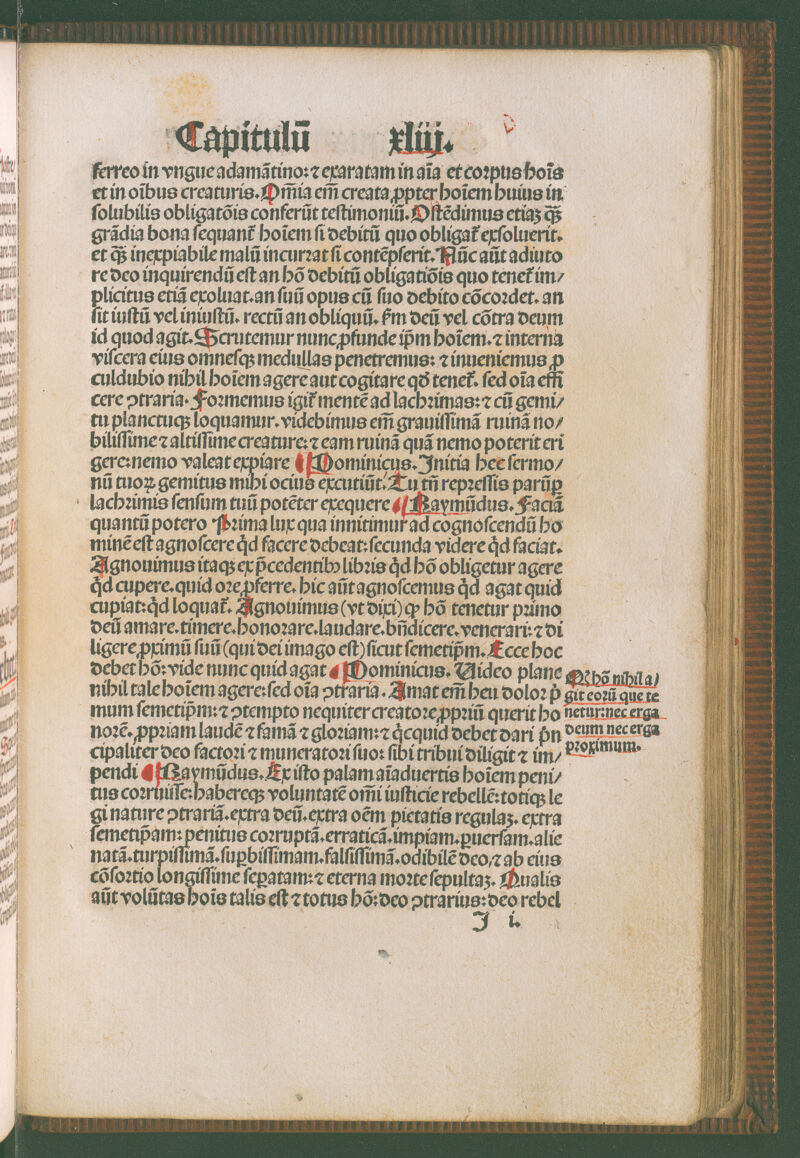 Capitulū xliij.
ferreo in vngue adamātino: ⁊ exaratam in aīa et corpus hoīs
et in oībus creaturis. Om̄ia em̄ creata ꝓpter hoīem huius in
ſolubilis obligatōis conferūt teſtimoniū. Oſtēdimus etiaꝫ qꝫ̄
grādia bona ſequant᷑ hoīem ſi debitū quo obligat᷑ exſoluerit.
et qꝫ̄ inexpiabile malū incurrat ſi contēpſerit. Nūc aūt adiuto
re deo inquirendū eſt an hō debitū obligatiōis quo tenet᷑ im⸗
plicitus etiā exoluat. an ſuū opus cū ſuo debito cōcordet. an
ſit iuſtū vel iniuſtū. rectū an obliquū. ẜm deū vel cōtra deum
id quod agit. Scrutemur nunc ꝓfunde ip̄m hoīem. ⁊ interna
viſcera eius omneſqꝫ medullas penetremus: ⁊ inueniemus ꝓ
culdubio nihil hoīem agere aut cogitare qd̄ tenet᷑. ſed oīa effi
cere ↄtraria. Formemus igit᷑ mentē ad lachrimas: ⁊ cū gemi⸗
tu planctuqꝫ loquamur. videbimus em̄ grauiſſimā ruinā no⸗
biliſſime ⁊ altiſſime creature: ⁊ eam ruinā quā nemo poterit eri
gere: nemo valeat expiare ¶ Dominicus. Initia hec ſermo⸗
nū tuoꝝ gemitus mihi ocius excutiūt. Tu tn̄ repreſſis parūꝑ
lachrimis ſenſum tuū potēter exequere ¶ Raymūdus. Faciā
quantū potero Prima lux qua innitimur ad cognoſcendū ho
minē eſt agnoſcere qd̓ facere debeat: ſecunda videre qd̓ faciat.
Agnouimus itaqꝫ ex p̄cedentibꝰ libris qd̓ hō obligetur agere
qd̓ cupere. quid ore ꝓferre. hic aūt agnoſcemus qd̓ agat quid
cupiat: qd̓ loquat᷑. Agnouimus (vt dixi) ꝙ hō tenetur primo
deū amare. timere. honorare. laudare. bn̄dicere. venerari: ⁊ di
ligere ꝓximū ſuū (qui dei imago eſt) ſicut ſemetip̄m. Ecce hoc
debet hō: vide nunc quid agat ¶ Dominicus. Video plane
nihil tale hoīem agere: ſed oīa ↄtraria. Amat em̄ heu dolor p̓
mum ſemetip̄m: ⁊ ↄtempto nequiter creatore ꝓpriū querit ho
norē. ꝓpriam laudē ⁊ famā ⁊ gloriam: ⁊ qͥcquid debet dari p̓n
cipaliter deo factori ⁊ muneratori ſuo: ſibi tribui diligit ⁊ im⸗
pendi ¶ Raymūdus. Ex iſto palam aīaduertis hoīem peni⸗
tus corruiſſe: habereqꝫ voluntatē om̄i iuſticie rebellē: totiqꝫ le
gi nature ↄtrariā. extra deū. extra oēm pietatis regulaꝫ. extra
ſemetip̄am: penitus corruptā. erraticā. impiam. ꝑuerſam. alie
natā. turpiſſimā. ſuꝑbiſſimam. falſiſſimā. odibilē deo, ⁊ ab eius
cōſortio longiſſime ſeꝑatam: ⁊ eterna morte ſepultaꝫ. Qualis
aūt volūtas hoīs talis eſt ⁊ totus hō: deo ↄtrarius: deo rebel
I i.
hō nihil a⸗
git eorū que te
netur: nec erga
deum nec erga
proximum.